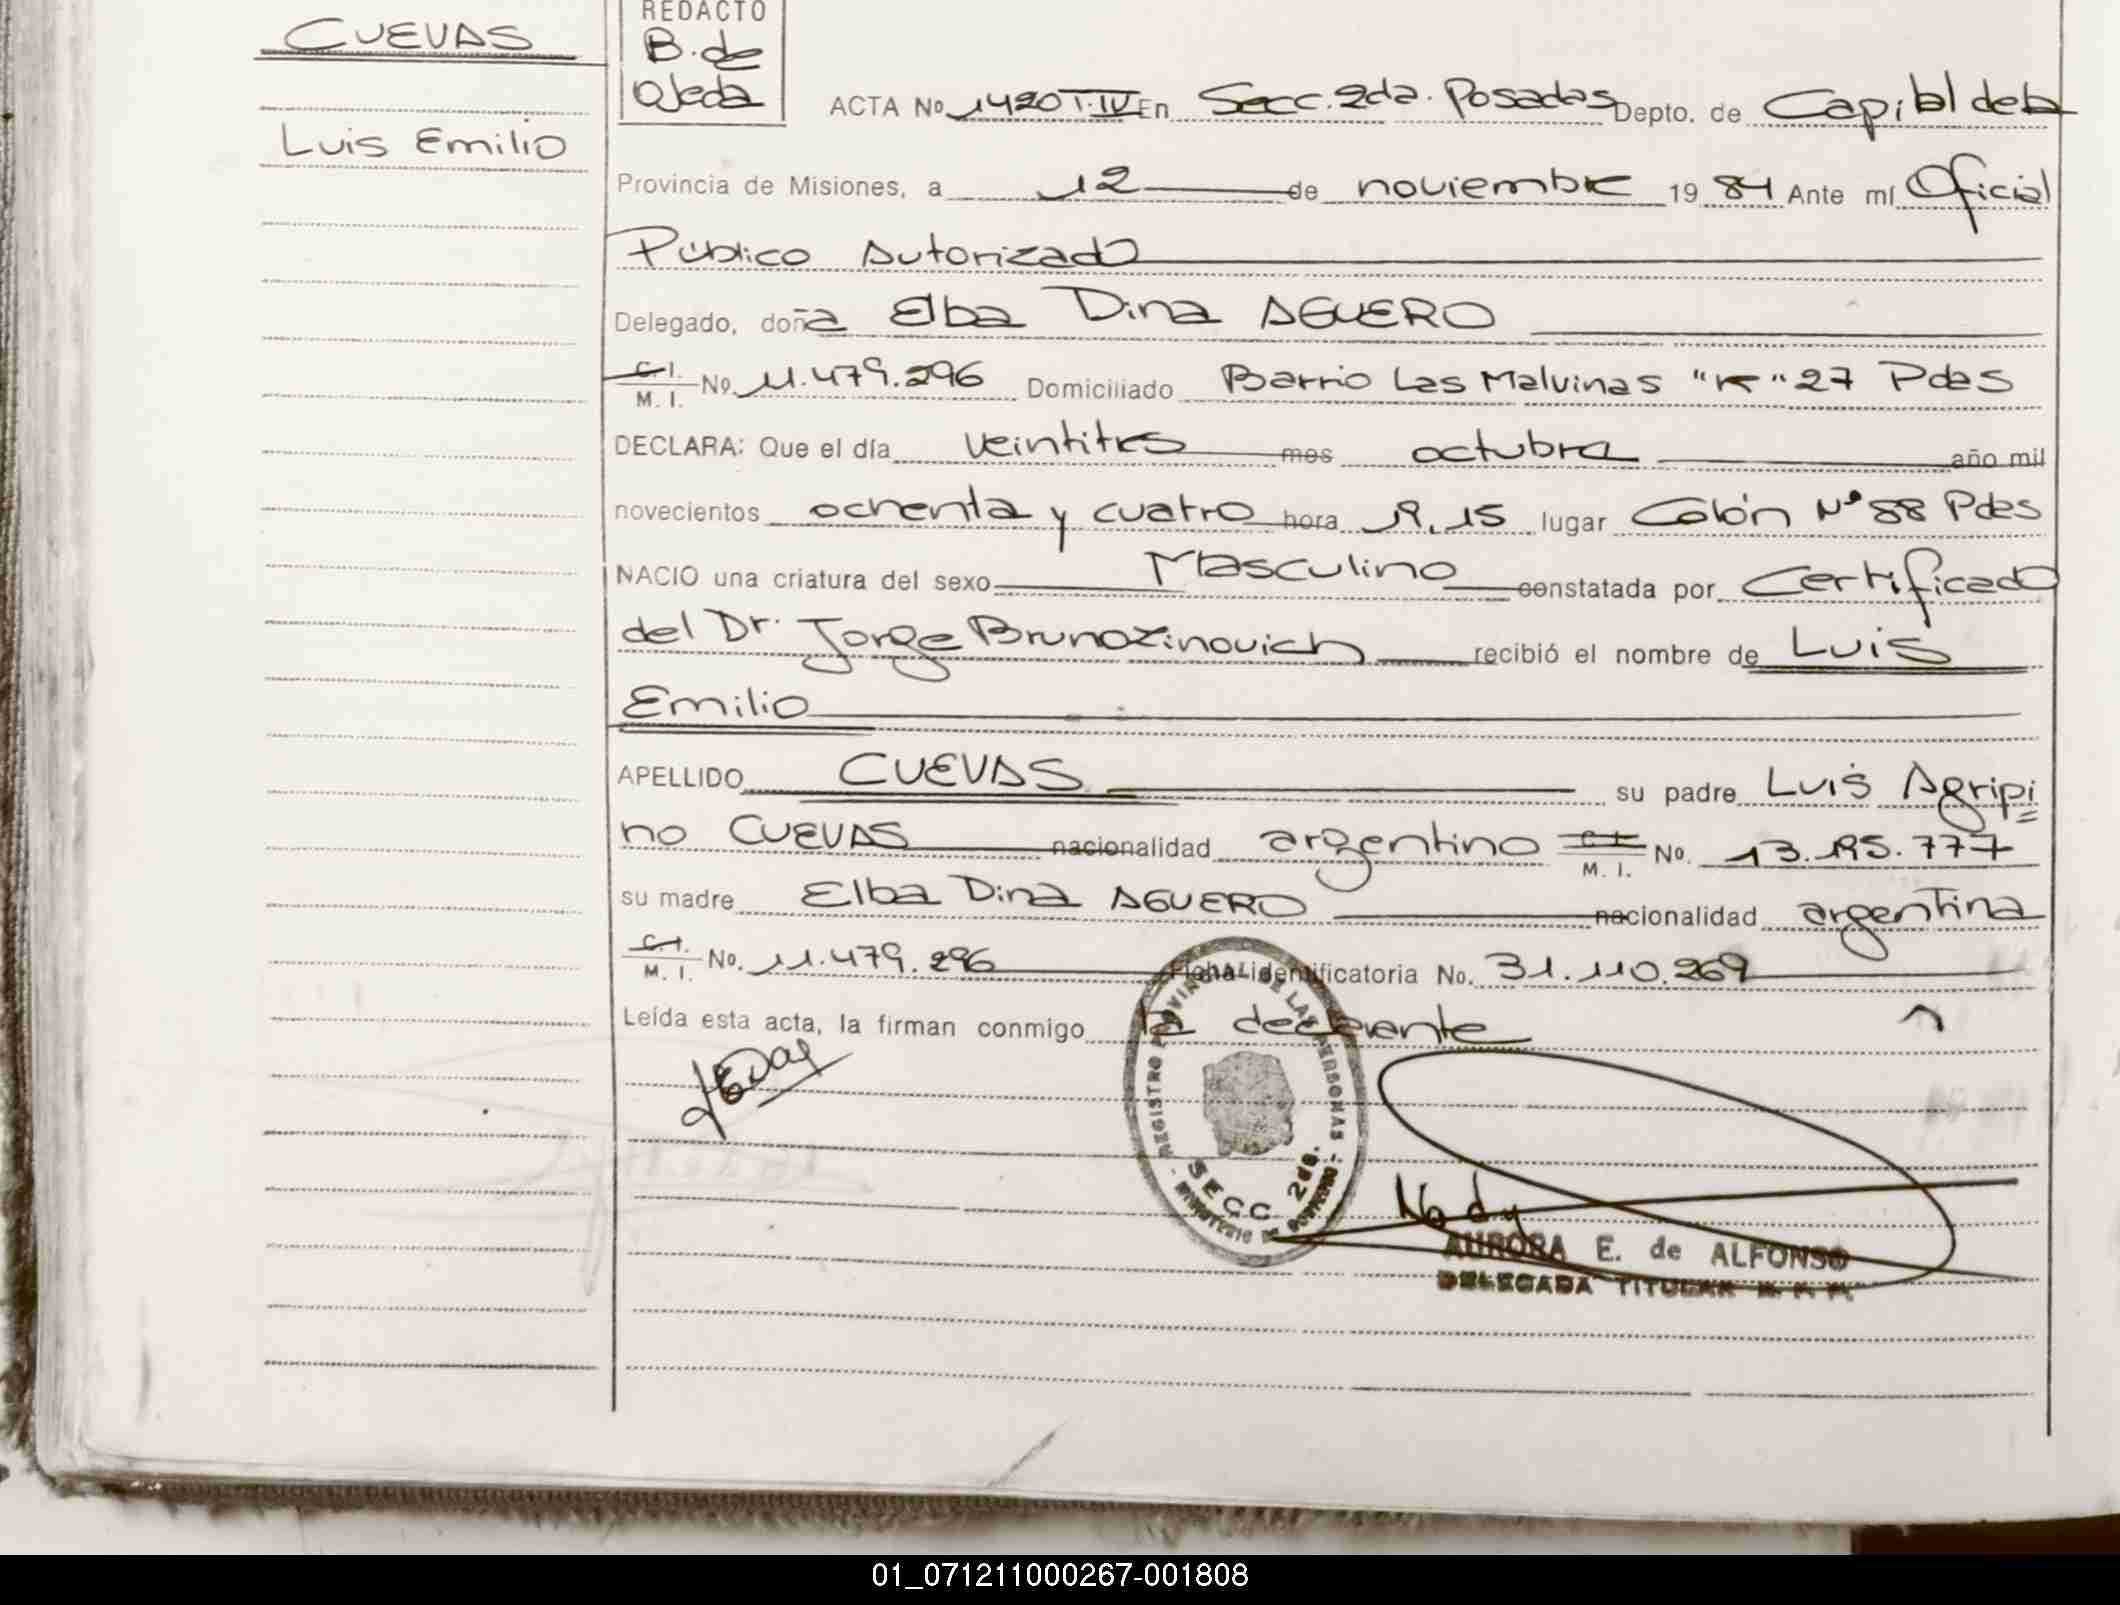 CUEVAS
Luis Emilio
REDACTO
B. de
Ojeda
ACTA No 1420 T. IV En Secc. 2da. Posadas Depto. de Capital de la
Provincia de Misiones, a 12 de noviembre 19 84 Ante mí Oficial
Público Autorizado
Delegado, doña Elba Dina AGUERO
C. I. / M. I. No. 11.479.296 Domiciliado Barrio Las Malvinas "K" 27 Pdas
DECLARA: Que el día veintitrés mes octubre año mil
novecientos ochenta y cuatro hora 19,15 lugar Colón Nº 88 Pdas
NACIO una criatura del sexo Masculino constatada por Certificado
del Dr. Jorge Bruno Zinovich recibió el nombre de Luis
Emilio
APELLIDO CUEVAS su padre Luis Agripi
no CUEVAS nacionalidad argentino C. I. / M. I. No. 13.195.777
su madre Elba Dina AGUERO nacionalidad argentina
C. I. / M. I. No. 11.479.296 Ficha identificatoria No. 31.110.269
Leída esta acta, la firman conmigo la declarante
REGISTRO PROVINCIAL DE LAS PERSONAS
SECC 2da.
MINISTERIO DE GOBIERNO
AURORA E. de ALFONSO
DELEGADA TITULAR R. P. P.
01_071211000267-001808